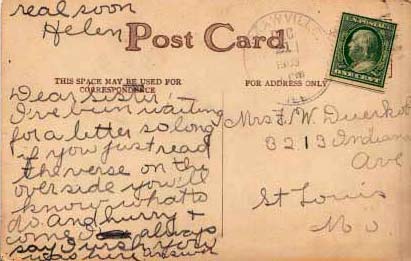 real soon
Helen
Post Card
THIS SPACE MAY BE USED FOR
CORRESPONDENCE
FOR ADDRESS ONLY
Dear sister:
I've bin waiting
for a letter so long
if you just read
the verse on the
over side you'll
know what to
do. and hurry &
come I always
say I wish you
was here answer
Mrs. F. W.
3213 Indiana
Ave
St Louis
Mo.